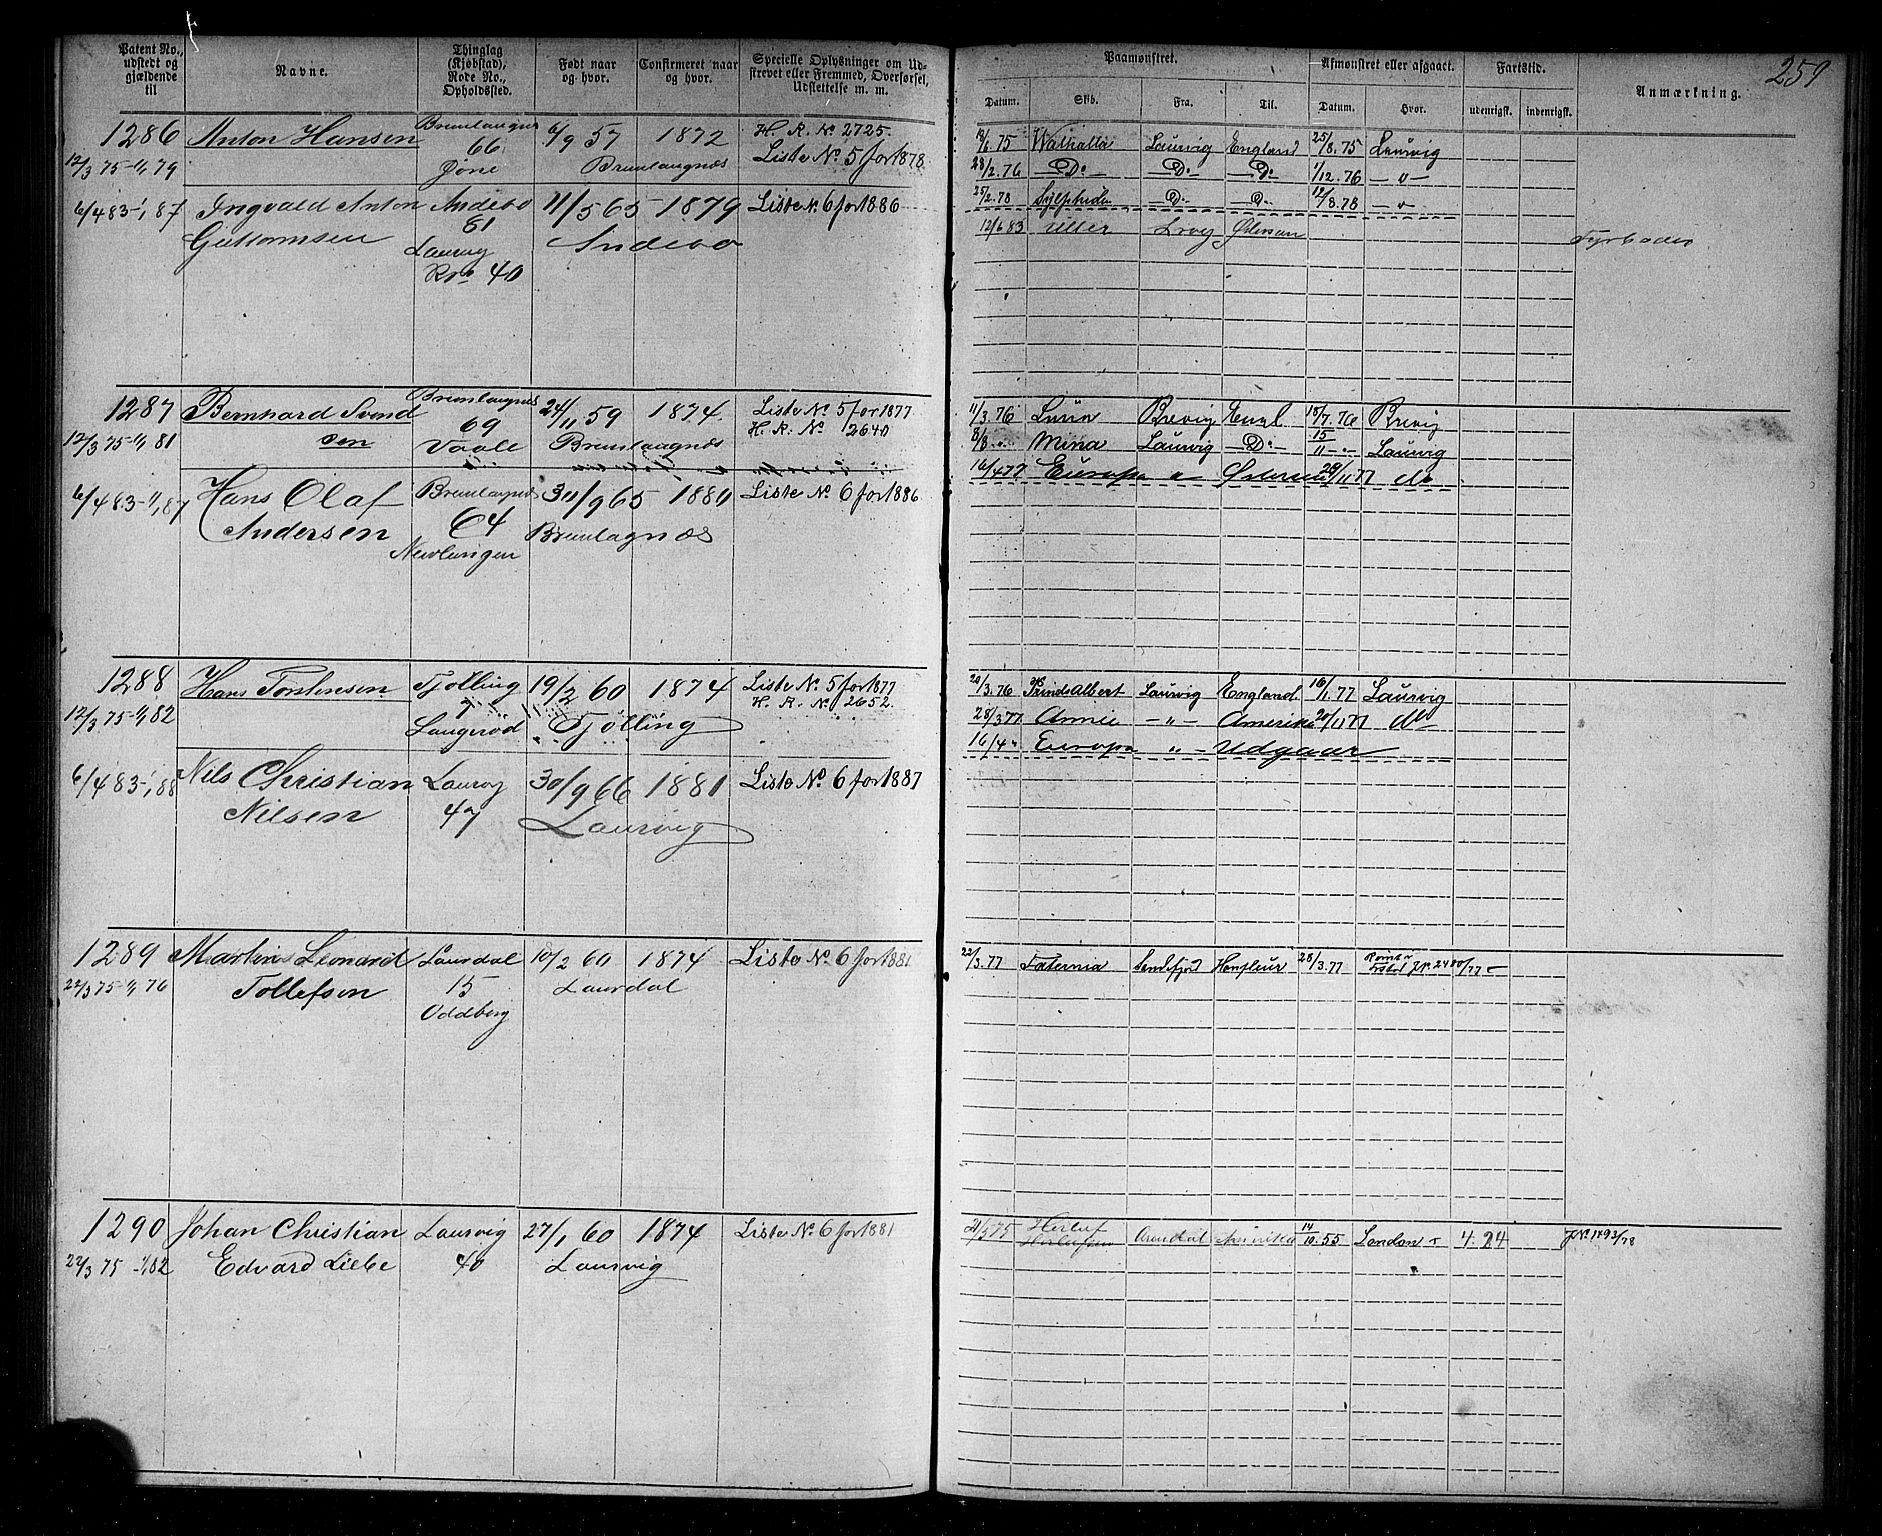 259
Patent No., udstedt og gjældende til
Navne.
Thinglag (Kjøbstad), Rode No., Opholdssted.
Født naar og hvor.
Confirmeret naar og hvor.
Specielle Oplysninger om Udskrevet eller Fremmed, Overførsel, Udslettelse m. m.
Paamønstret.
Afmønstret eller afgaaet.
Fartstid.
Anmærkning.
Datum. Skib. Fra. Til. Datum. Hvor. udenrigsk. indenrigsk.
1286 Anton Hansen Brunlaugnæs 6/9 57 1872 H. R. No 2725.
66 Liste No 5 for 1878
12/3 75 - 1/1 79 Jóne Brunlaugnæs
18/6 75 Walhalla Laurvig England 25/8.75 Laurvig
28/2.76 —Do— —Do— —Do— 1/12.76 — " —
25/2.78 Sylphide —D— —D— 12/8.78 — " —
6/4 83 - 1/1 87 Ingvald Anton Andebo 11/5 65 1879 Liste No 6 for 1886
Guttormsen 81 Andebo
Laurvig
Rno 40
12/6 83 Uller Lrvg Østersøen Fyrbøder
1287 Bernhard Svend Brunlaugnæs 24/11 59 1874 Liste No 5 for 1877
sen 69 H. R. No 2640
12/3 75 - 1/1 81 Vaale Brunlaugnæs
11/3.76 Luna Brevig Engl 15/7.76 Brevig
8/8 " Mina Laurvig —Do— 15/11 - " - Laurvig
16/4 77 Europa " Østersøen 29/11 77 do
6/4 83 - 1/1 87 Hans Olaf Brunlaugnæs 30/9 65 1880 Liste No 6 for 1886
Andersen 64 Brunlagnæs
Nevlungen
1288 Hans Torstensen Tjølling 19/2 60 1874 Liste No 5 for 1877
7 H. R. No 2652
12/3 75 - 1/1 82 Laugerød Tjølling
20/3.76 Prinds Albert Laurvig England 16/1.77 Laurvig
28/3 77 Annie — " — Amerika 20/11 77 do
16/4 " Europa " — Udgaar
6/4 83 - 1/1 88 Nils Christian Laurvg 30/9 66 1881 Liste No 6 for 1887
Nilsen 47 Laurvig
1289 Martin Leonard Laurdal 10/2 60 1874 Liste No 6 for 1881
22/3 75 - 1/1 76 Tollefsen 15 Laurdal
Oddberg
22/3.77 Sandefjord Honfleur 28/3.77 JN. 2480/77
1290 Johan Christian Laurvig 27/1 60 1874 Liste No 6 for 1881
22/3 75 - 1/1 82 Edvard Liebe 40 Laurvig
21/3 75 Herluf Herlufsen Arendal Amerika 14/10.55 London 4.24 JN. 1492/78